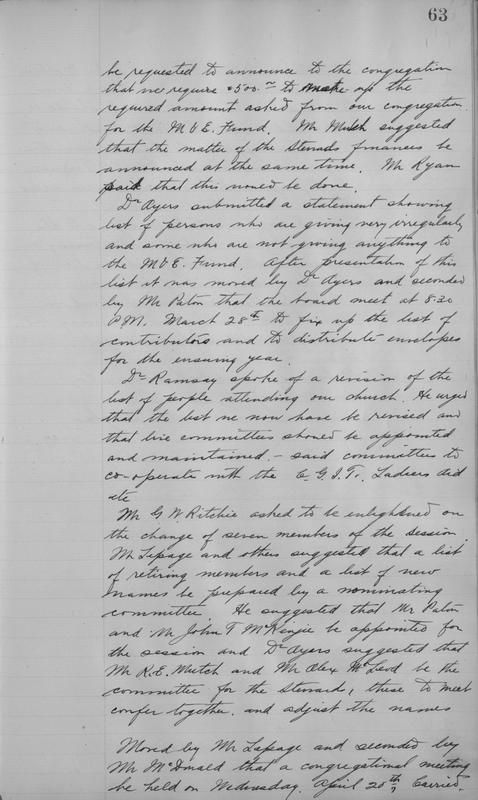 63
be requested to announce to the congregation
that we require $500 to make up the
required amount asked from our congregation
for the M & E. Fund. Mr Mutch suggested
that the matter of the Stewards finances be
announced at the same time. Mr Ryan
said that this would be done.
Dr Ayers submitted a statement showing
list of persons who are giving very irregularly
and some who are not giving anything to
the M & E. Fund. After presentation of this
list it was moved by Dr Ayers and seconded
by Mr Paton that the board meet at 8:30
P.M. March 28th to fix up the list of
contributors and to distribute envelopes
for the ensuing year.
Dr Ramsay spoke of a revision of the
list of people attending our church. He urged
that the list we now have be revised and
that live committees should be appointed
and maintained - said committees to
co-operate with the C.G.I.T. Ladies aid
etc
Mr G W. Ritchie asked to be enlightened on
the change of seven members of the session.
Mr Lepage and others suggested that a list
of retiring members and a list of new
names be prepared by a nominating
committee. He suggested that Mr Paton
and Mr John T McKenzie be appointed for
the session and Dr Ayers suggested that
Mr R.E. Mutch and Mr Alex McLeod be the
committee for the Stewards, these to meet
confer together. and adjust the names
Moved by Mr Lepage and seconded by
Mr McDonald that a congregational meeting
be held on Wednesday. April 20th, Carried.